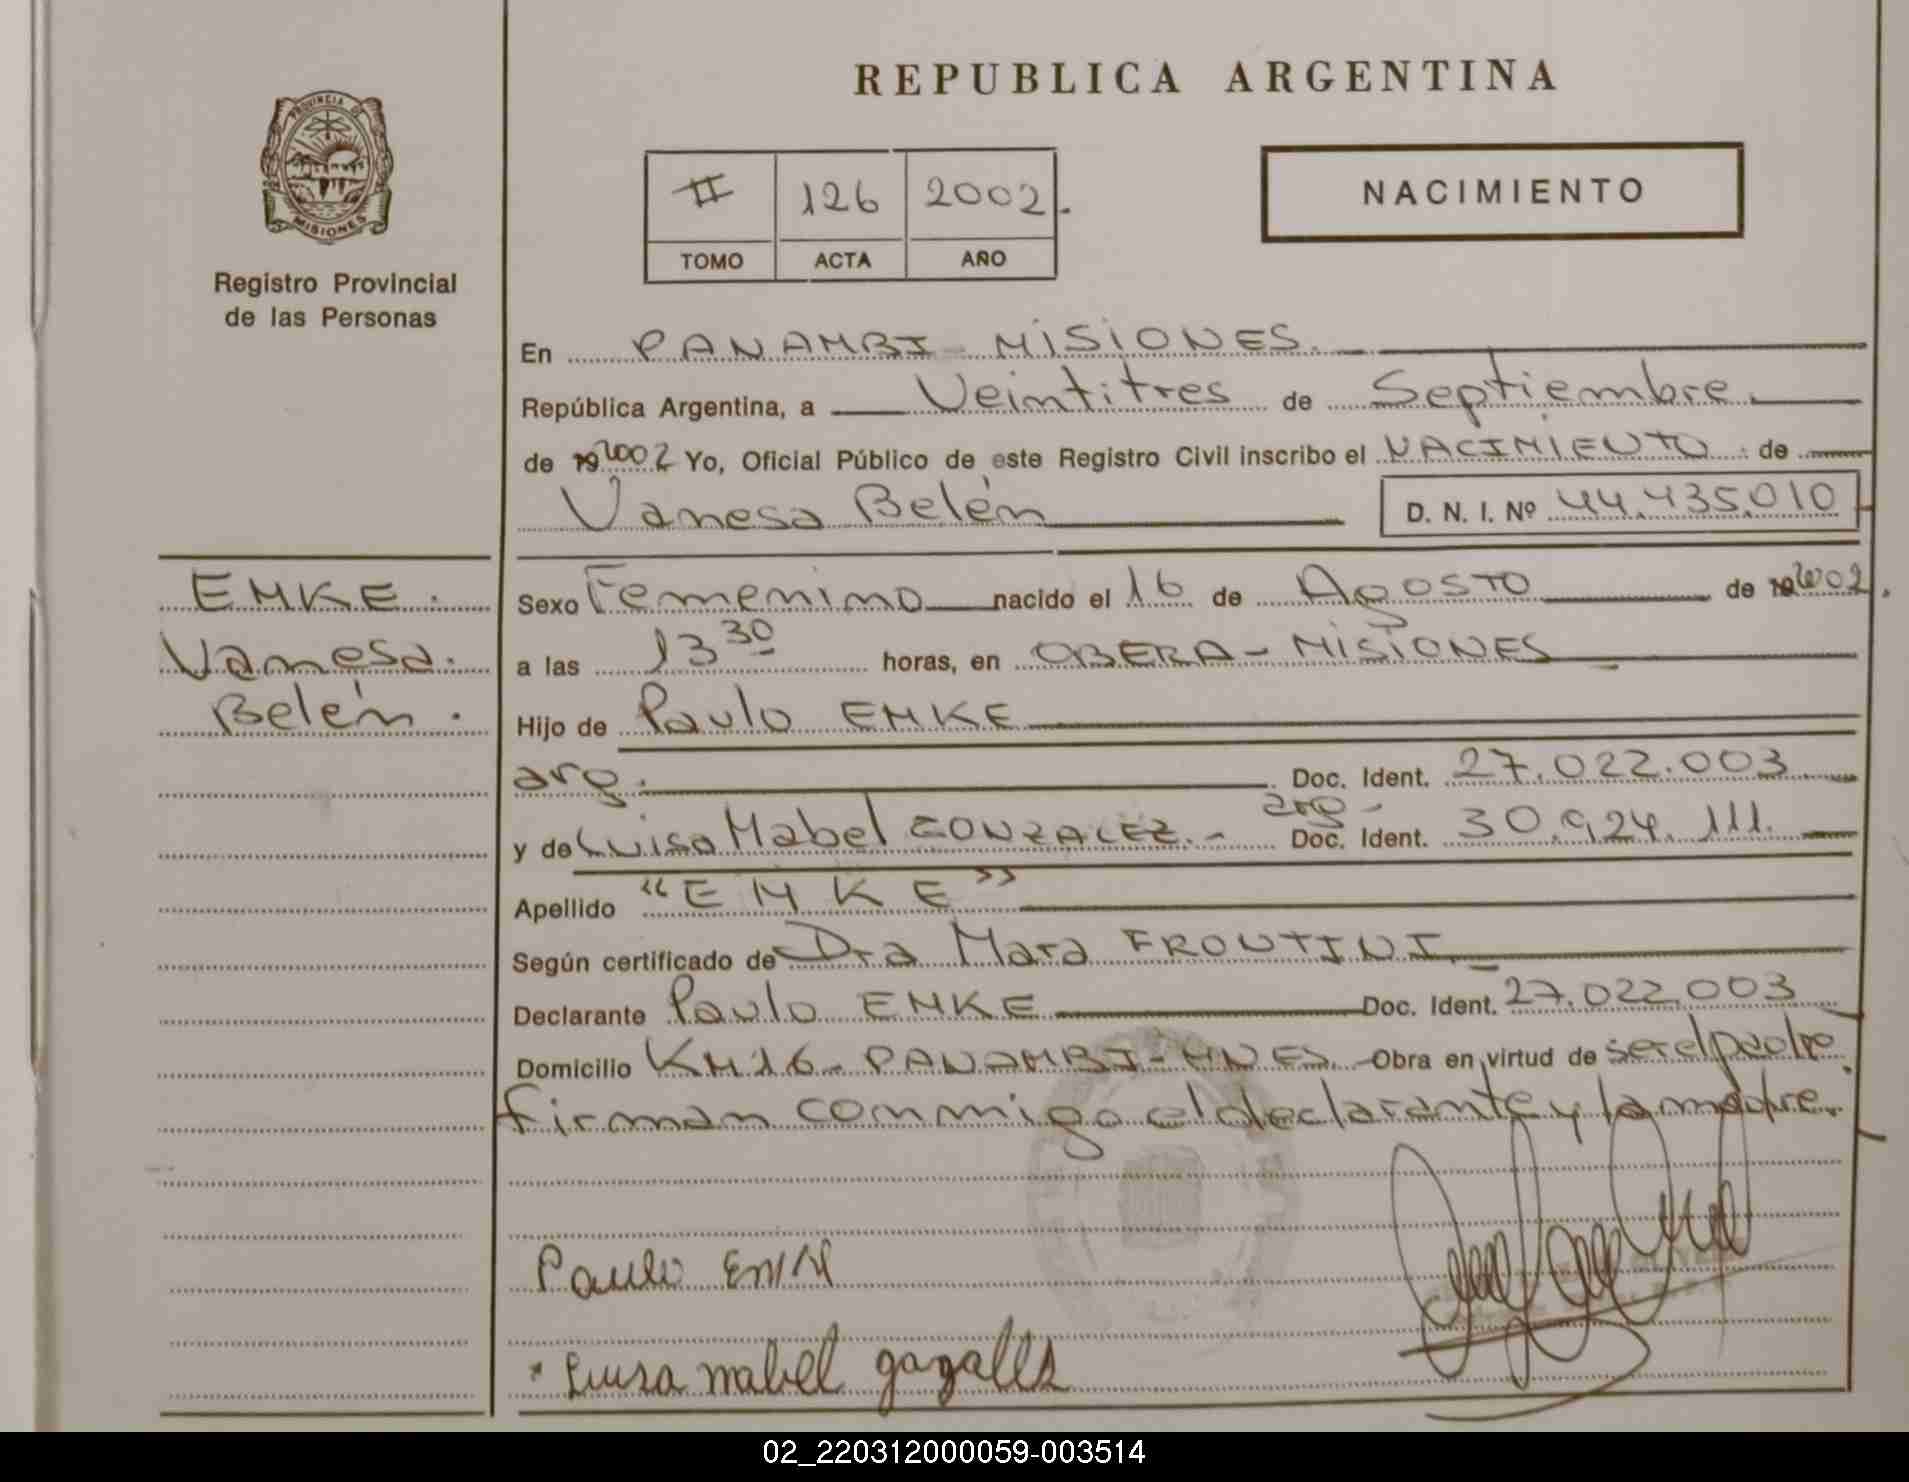 REPUBLICA ARGENTINA
PROVINCIA DE
MISIONES
II 126 2002.
TOMO ACTA AÑO
NACIMIENTO
Registro Provincial
de las Personas
En PANAMBI - MISIONES.
República Argentina, a Veintitres de Septiembre.
de 192002 Yo, Oficial Público de este Registro Civil inscribo el NACIMIENTO de
Vanesa Belén D. N. I. Nº 44.435.010
EMKE.
Vanesa.
Belén.
Sexo Femenino nacido el 16 de Agosto de 192002.
a las 13 30 horas, en OBERA - MISIONES
Hijo de Paulo EMKE
arg. Doc. Ident. 27.022.003
y de Luisa Mabel GONZALEZ.- arg- Doc. Ident. 30.924.111.
Apellido "EMKE"
Según certificado de Dra Mara FRONTINI.
Declarante Paulo EMKE Doc. Ident. 27.022.003
Domicilio KM16- PANAMBI-MNES. Obra en virtud de ser el padre.
firman conmigo el declarante y la madre.
Paulo Emke
Luisa mabel
02_220312000059-003514